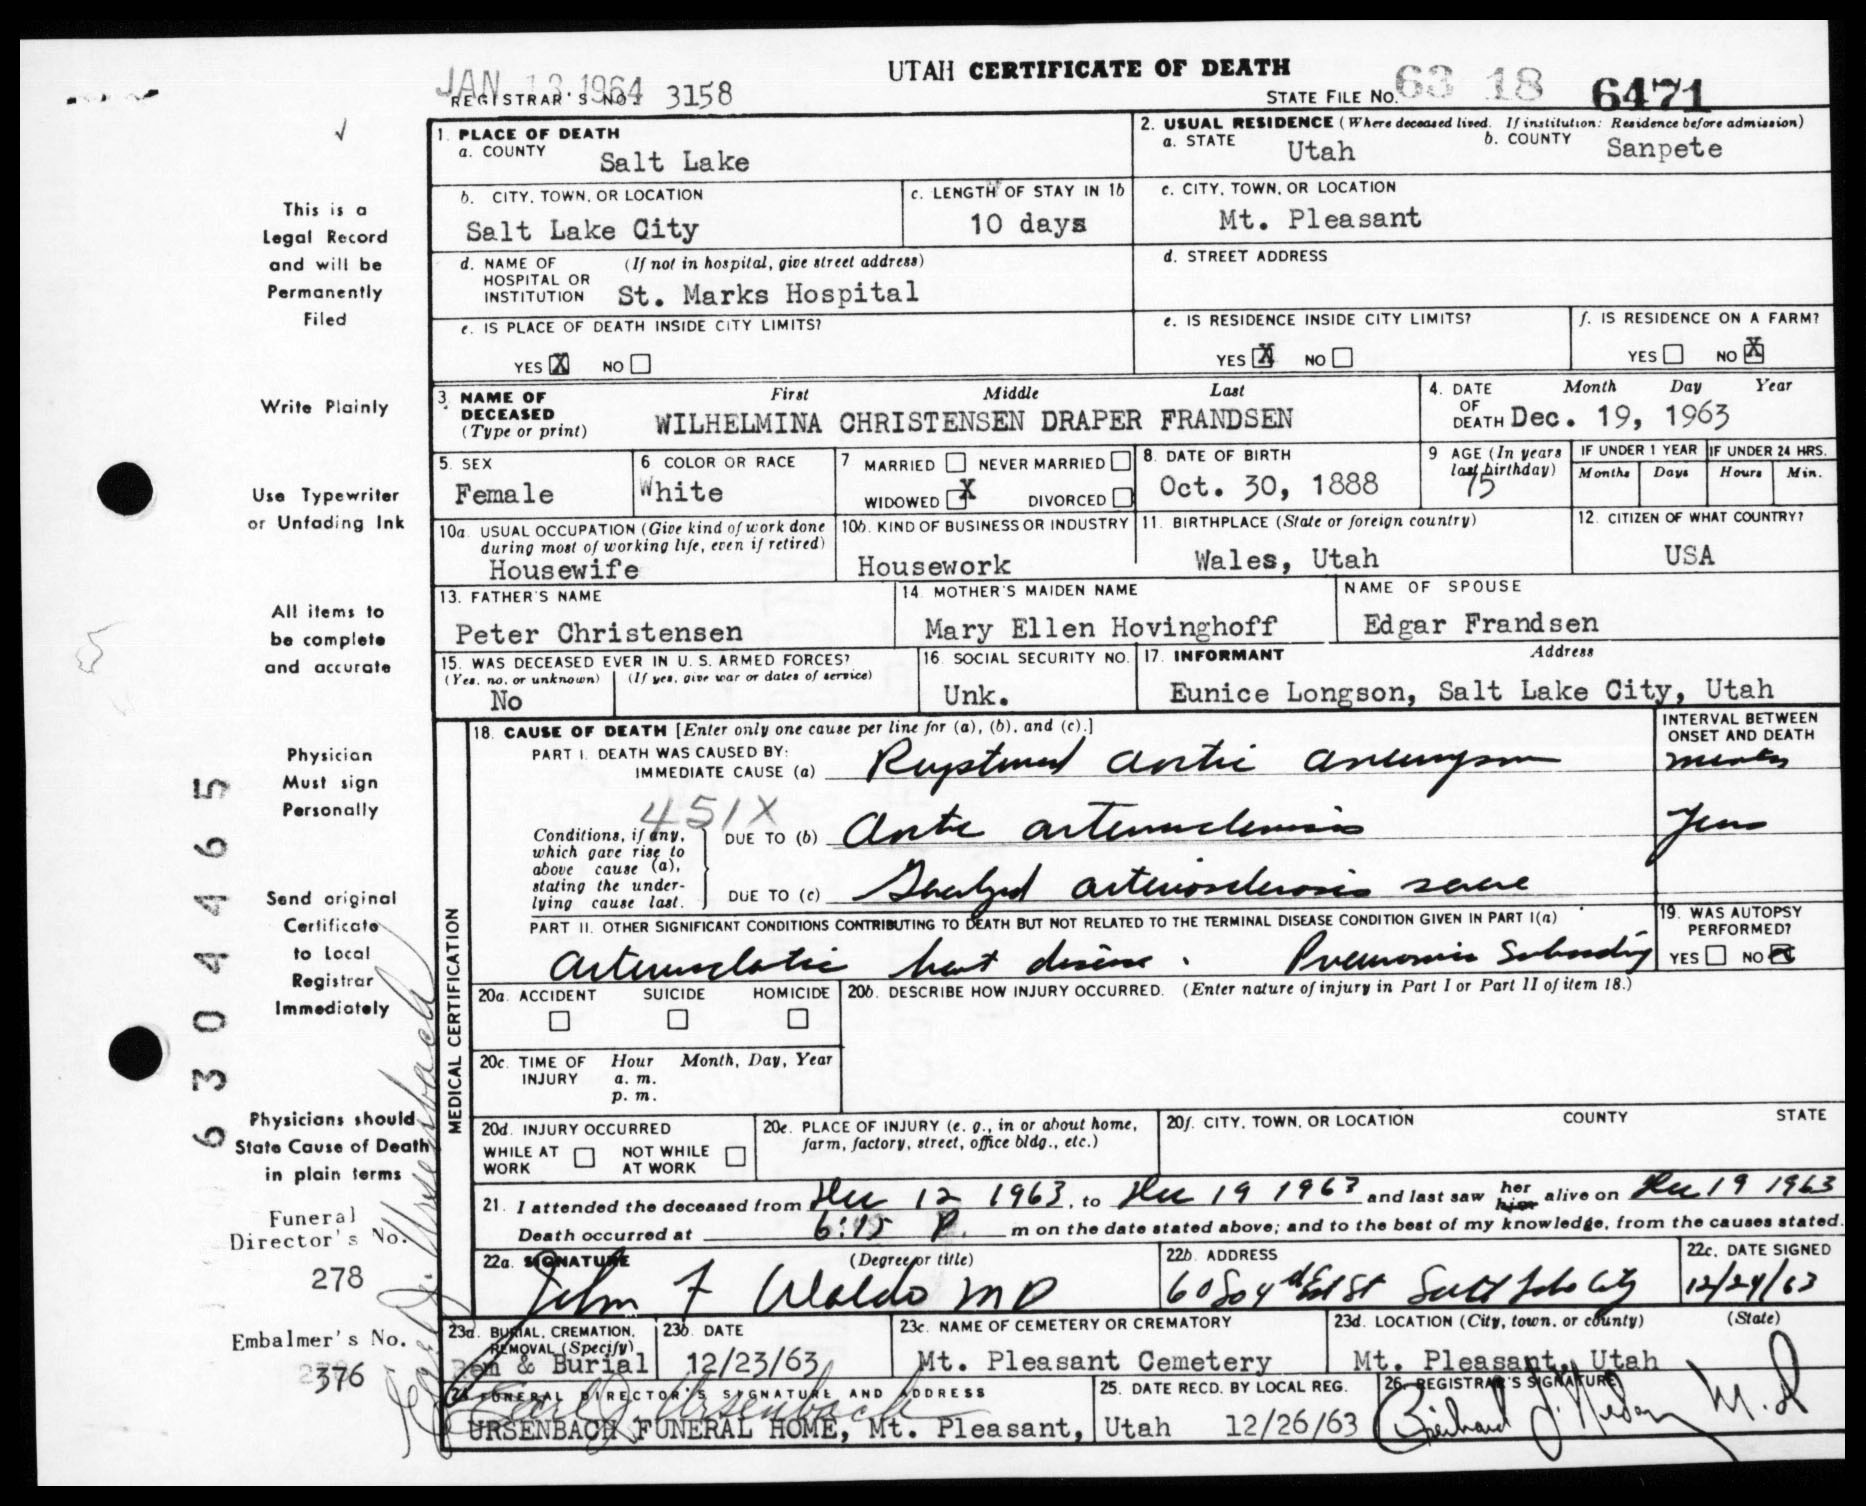 UTAH CERTIFICATE OF DEATH
JAN 13 1964
REGISTRAR'S NO. 3158
STATE FILE NO. 63 18 6471
1. PLACE OF DEATH
a. COUNTY
Salt Lake
2. USUAL RESIDENCE (Where deceased lived. If institution: Residence before admission)
a. STATE
Utah
b. COUNTY
Sanpete
b. CITY, TOWN, OR LOCATION
Salt Lake City
c. LENGTH OF STAY IN 1b
10 days
c. CITY, TOWN, OR LOCATION
Mt. Pleasant
d. NAME OF HOSPITAL OR INSTITUTION
(If not in hospital, give street address)
St. Marks Hospital
d. STREET ADDRESS
e. IS PLACE OF DEATH INSIDE CITY LIMITS?
YES X NO
e. IS RESIDENCE INSIDE CITY LIMITS?
YES X NO
f. IS RESIDENCE ON A FARM?
YES NO X
3. NAME OF DECEASED
(Type or print)
First Middle Last
WILHELMINA CHRISTENSEN DRAPER FRANDSEN
4. DATE OF DEATH
Month Day Year
Dec. 19, 1963
5. SEX
Female
6 COLOR OR RACE
White
7 MARRIED NEVER MARRIED
WIDOWED X DIVORCED
8. DATE OF BIRTH
Oct. 30, 1888
9 AGE (In years last birthday)
75
IF UNDER 1 YEAR
Months Days
IF UNDER 24 HRS.
Hours Min.
10a. USUAL OCCUPATION (Give kind of work done during most of working life, even if retired)
Housewife
10b. KIND OF BUSINESS OR INDUSTRY
Housework
11. BIRTHPLACE (State or foreign country)
Wales, Utah
12. CITIZEN OF WHAT COUNTRY?
USA
13. FATHER'S NAME
Peter Christensen
14. MOTHER'S MAIDEN NAME
Mary Ellen Hovinghoff
NAME OF SPOUSE
Edgar Frandsen
15. WAS DECEASED EVER IN U. S. ARMED FORCES?
(Yes, no, or unknown) (If yes, give war or dates of service)
No
16. SOCIAL SECURITY NO.
Unk.
17. INFORMANT Address
Eunice Longson, Salt Lake City, Utah
MEDICAL CERTIFICATION
18. CAUSE OF DEATH [Enter only one cause per line for (a), (b), and (c).]
INTERVAL BETWEEN ONSET AND DEATH
PART I. DEATH WAS CAUSED BY:
IMMEDIATE CAUSE (a) Ruptured aortic aneurysm
451X
Conditions, if any, which gave rise to above cause (a), stating the underlying cause last.
DUE TO (b) Aortic arteriosclerosis
Years
DUE TO (c) Generalized arteriosclerosis severe
PART II. OTHER SIGNIFICANT CONDITIONS CONTRIBUTING TO DEATH BUT NOT RELATED TO THE TERMINAL DISEASE CONDITION GIVEN IN PART I(a)
Arteriosclerotic heart disease. Pneumonia Subsiding
19. WAS AUTOPSY PERFORMED?
YES NO X
20a. ACCIDENT SUICIDE HOMICIDE
20b. DESCRIBE HOW INJURY OCCURRED. (Enter nature of injury in Part I or Part II of item 18.)
20c. TIME OF INJURY
Hour Month, Day, Year
a. m.
p. m.
20d. INJURY OCCURRED
WHILE AT WORK NOT WHILE AT WORK
20e. PLACE OF INJURY (e. g., in or about home, farm, factory, street, office bldg., etc.)
20f. CITY, TOWN, OR LOCATION COUNTY STATE
21. I attended the deceased from Dec 12 1963, to Dec 19 1963 and last saw her him alive on Dec 19 1963
Death occurred at 6:15 P. m on the date stated above; and to the best of my knowledge, from the causes stated.
22a. SIGNATURE (Degree or title)
John F Waldo MD
22b. ADDRESS
60 So 4th East St Salt Lake City
22c. DATE SIGNED
12/24/63
23a. BURIAL, CREMATION, REMOVAL (Specify)
Rem & Burial
23b. DATE
12/23/63
23c. NAME OF CEMETERY OR CREMATORY
Mt. Pleasant Cemetery
23d. LOCATION (City, town, or county) (State)
Mt. Pleasant, Utah
24. FUNERAL DIRECTOR'S SIGNATURE AND ADDRESS
Earl J. Ursenbach
URSENBACH FUNERAL HOME, Mt. Pleasant, Utah
25. DATE RECD. BY LOCAL REG.
12/26/63
26. REGISTRAR'S SIGNATURE
M.D.
This is a
Legal Record
and will be
Permanently
Filed
Write Plainly
Use Typewriter
or Unfading Ink
All items to
be complete
and accurate
Physician
Must sign
Personally
Send original
Certificate
to Local
Registrar
Immediately
Physicians should
State Cause of Death
in plain terms
Funeral
Director's No.
278
Embalmer's No.
376
Earl J. Ursenbach
6304465